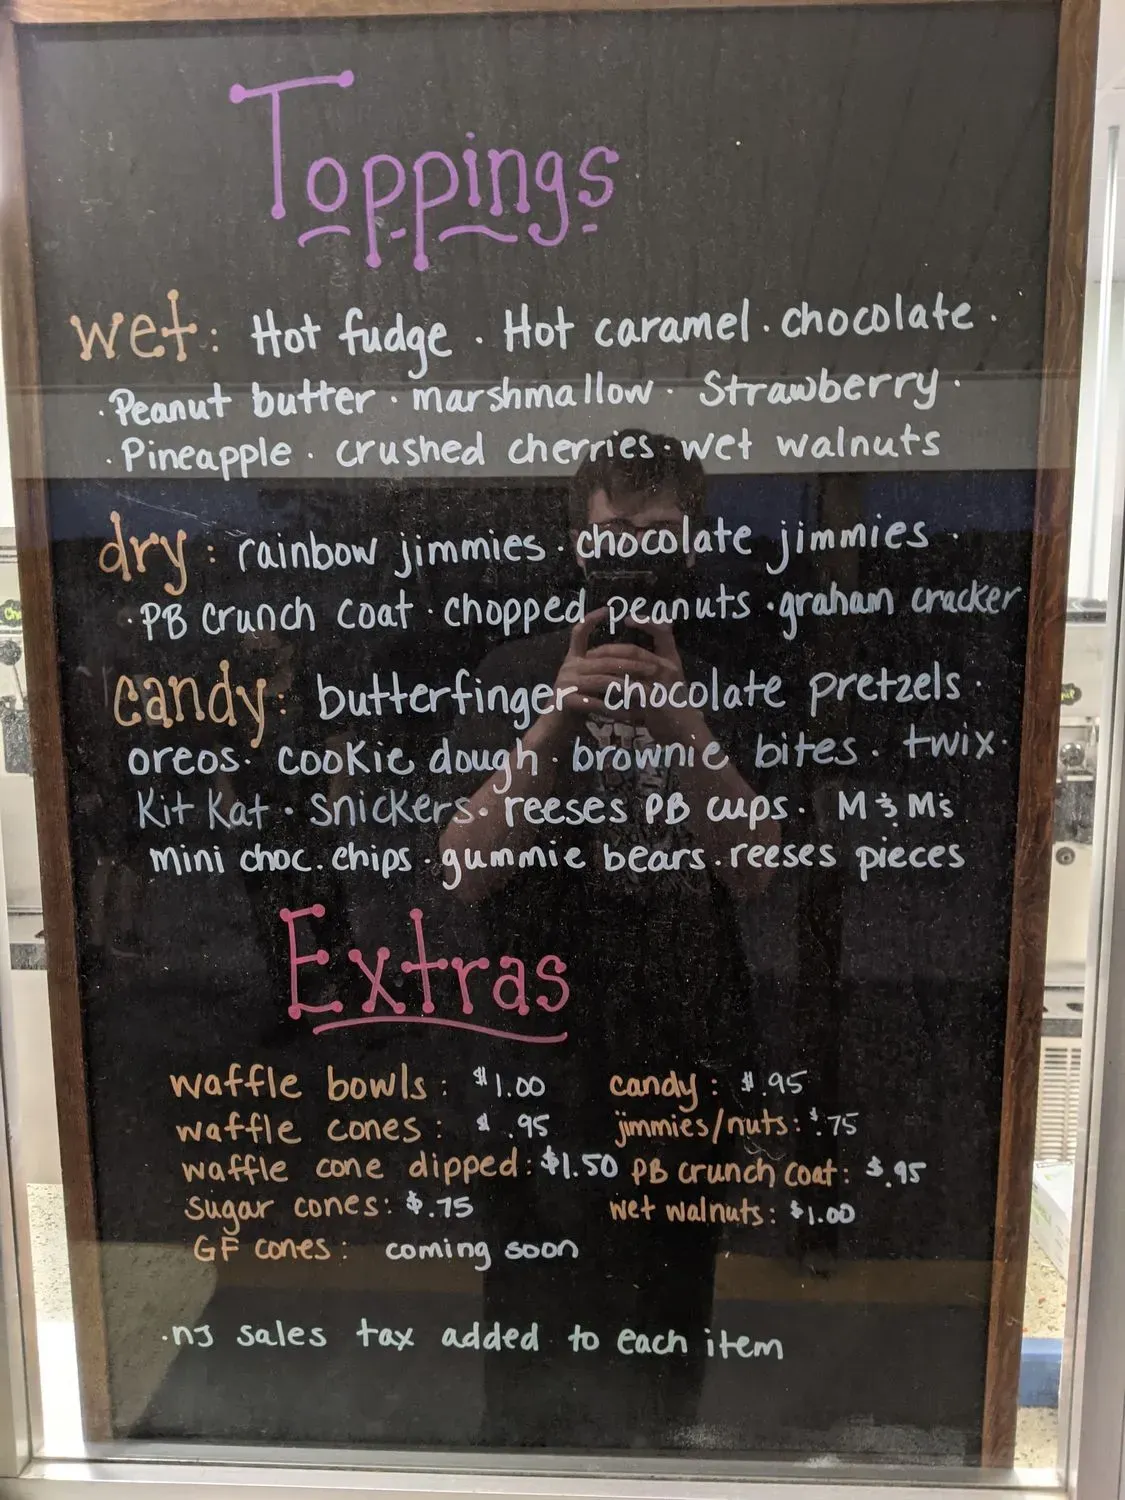 Toppings
wet: Hot fudge · Hot caramel · chocolate ·
· Peanut butter · marshmallow · Strawberry ·
· Pineapple · crushed cherries · wet walnuts
dry: rainbow jimmies · chocolate jimmies ·
· PB crunch coat · chopped peanuts · graham cracker
candy: butterfinger · chocolate pretzels ·
oreos · cookie dough · brownie bites · twix ·
Kit Kat · Snickers · reeses PB cups · M & M's
mini choc. chips · gummie bears · reeses pieces
Extras
waffle bowls: $1.00
waffle cones: $.95
waffle cone dipped: $1.50
sugar cones: $.75
GF cones: coming soon
candy: $.95
jimmies/nuts: $.75
PB crunch coat: $.95
wet walnuts: $1.00
· nJ sales tax added to each item